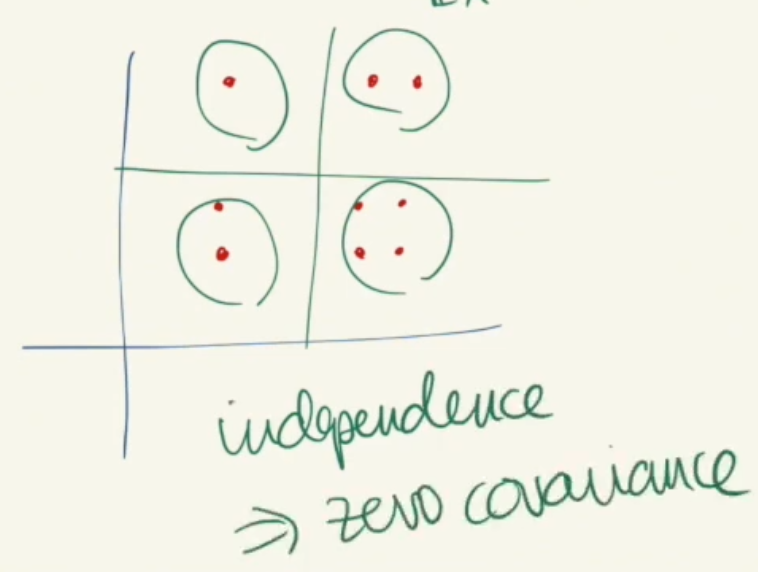 independence
⇒ zero covariance